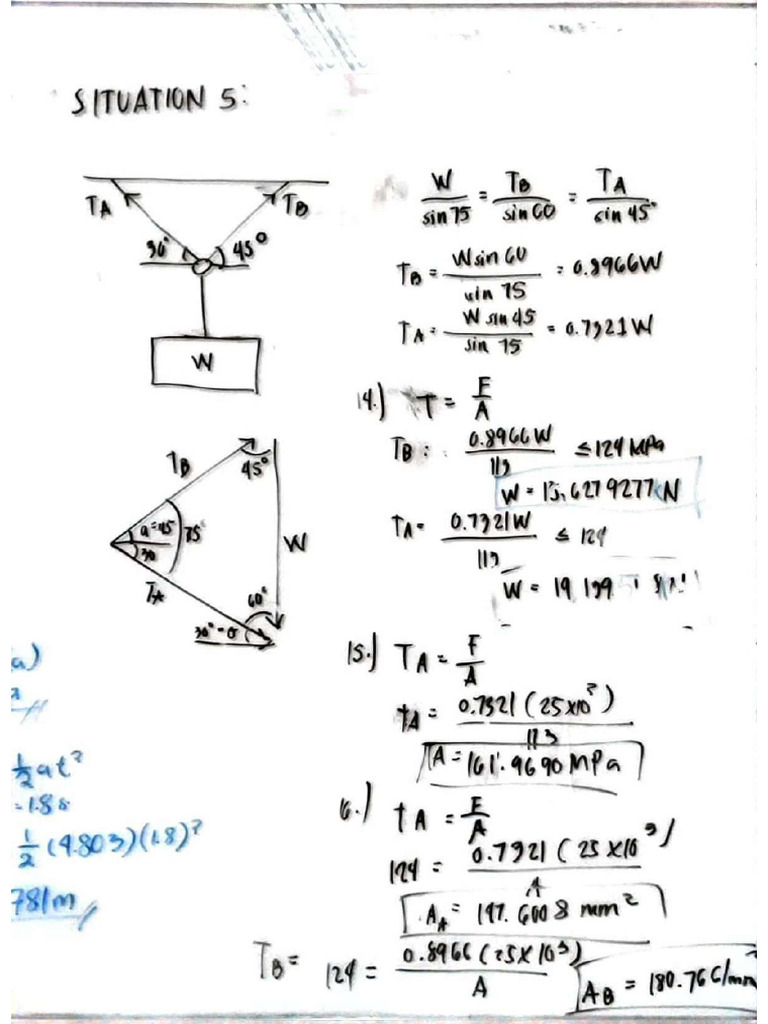 SITUATION 5:
TA
TB
30°
45°
W
W/sin 75 = TB/sin 60 = TA/sin 45°
TB = W sin 60/sin 75 = 0.8966W
TA = W sin 45/sin 75 = 0.7321W
14.) T = F/A
TB: 0.8966W/113 ≤ 124 MPa
W = 15.6279277 kN
TA = 0.7321W/113 ≤ 124
W = 19.139
TB
45°
a=45
30
75°
W
TA
60°
30°
15.) TA = F/A
tA = 0.7321 (25x10³)/113
TA = 161.9690 MPa
6.) tA = F/A
124 = 0.7321 (25 x10³)/A
AA = 147.6008 mm²
TB = 124 = 0.8966 (25x10³)/A
AB = 180.766/mm
a)
½at²
=1.8s
½ (4.803)(1.8)²
781m